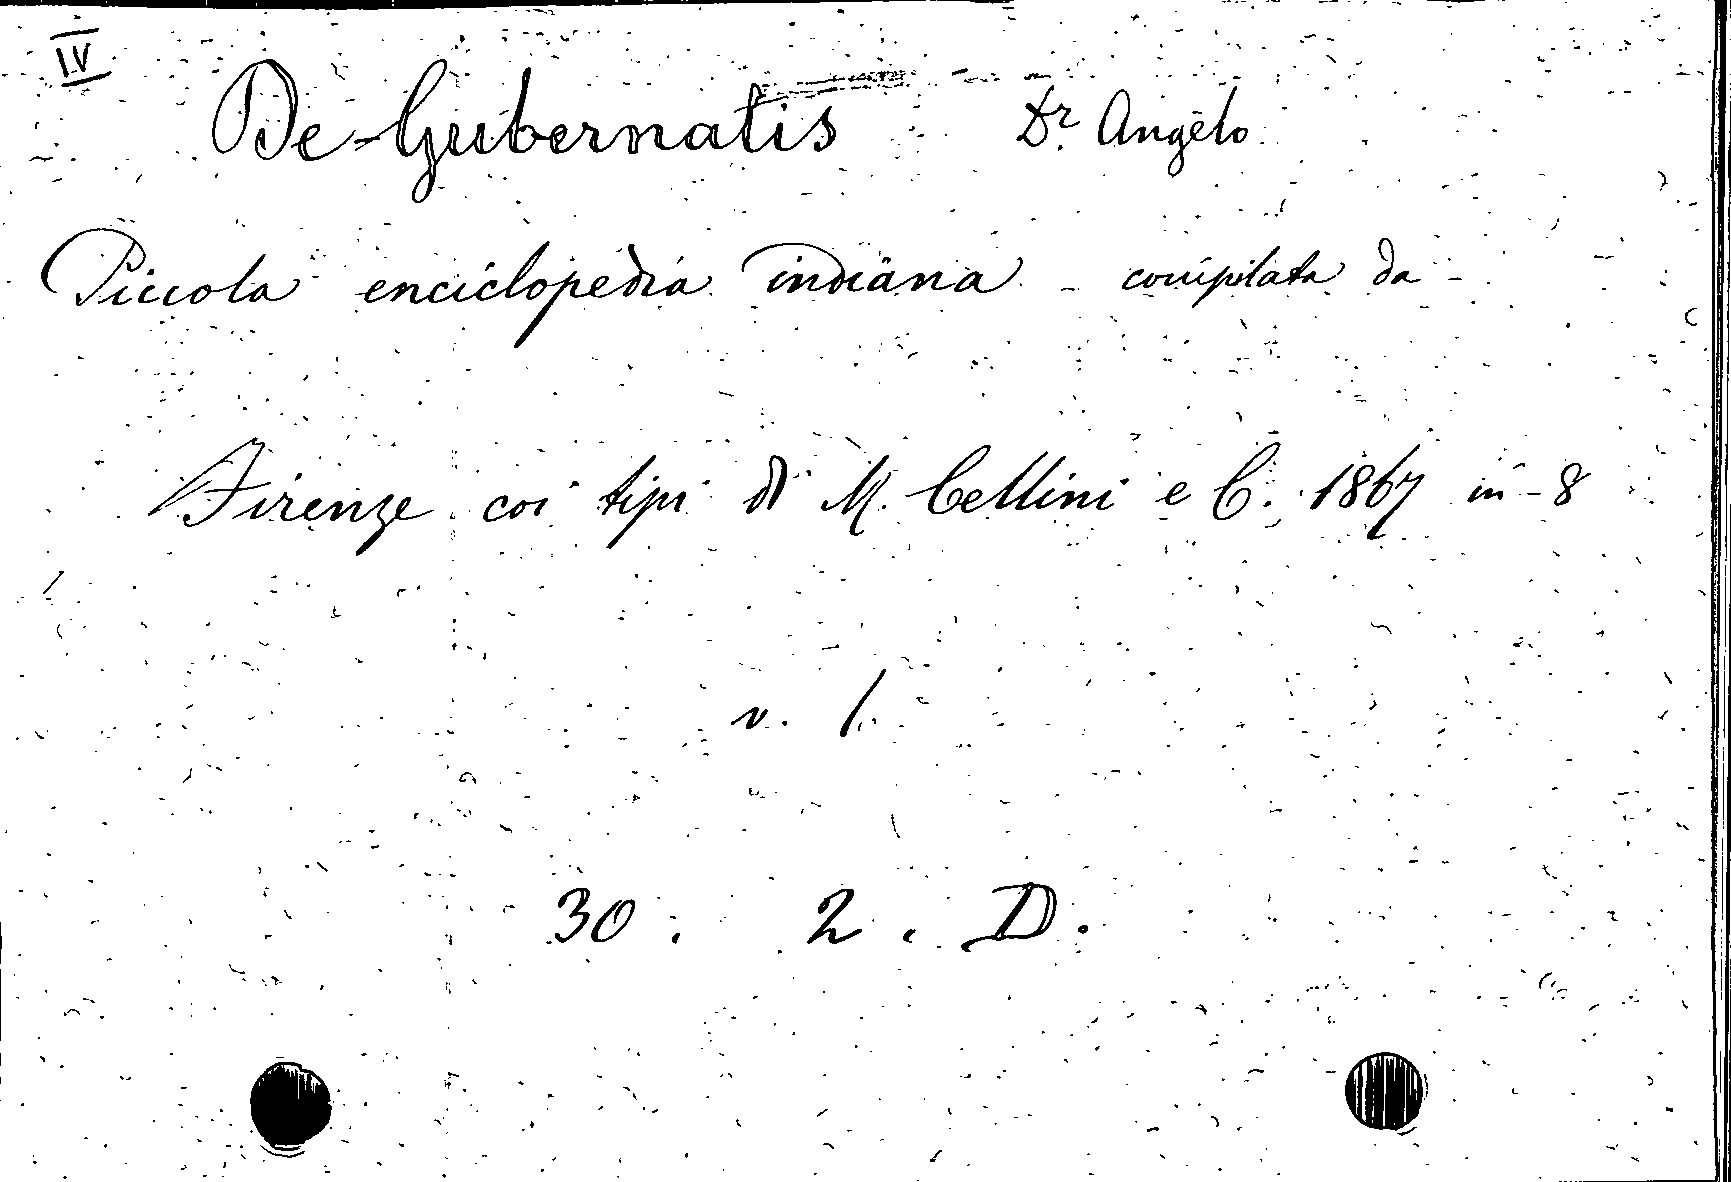 IV
De-Gubernatis Dr. Angelo
Piccola enciclopedia indiana - compilata da -
Firenze coi tipi di M. Cellini e C. 1867 in-8
v. 1.
30. 2. D.